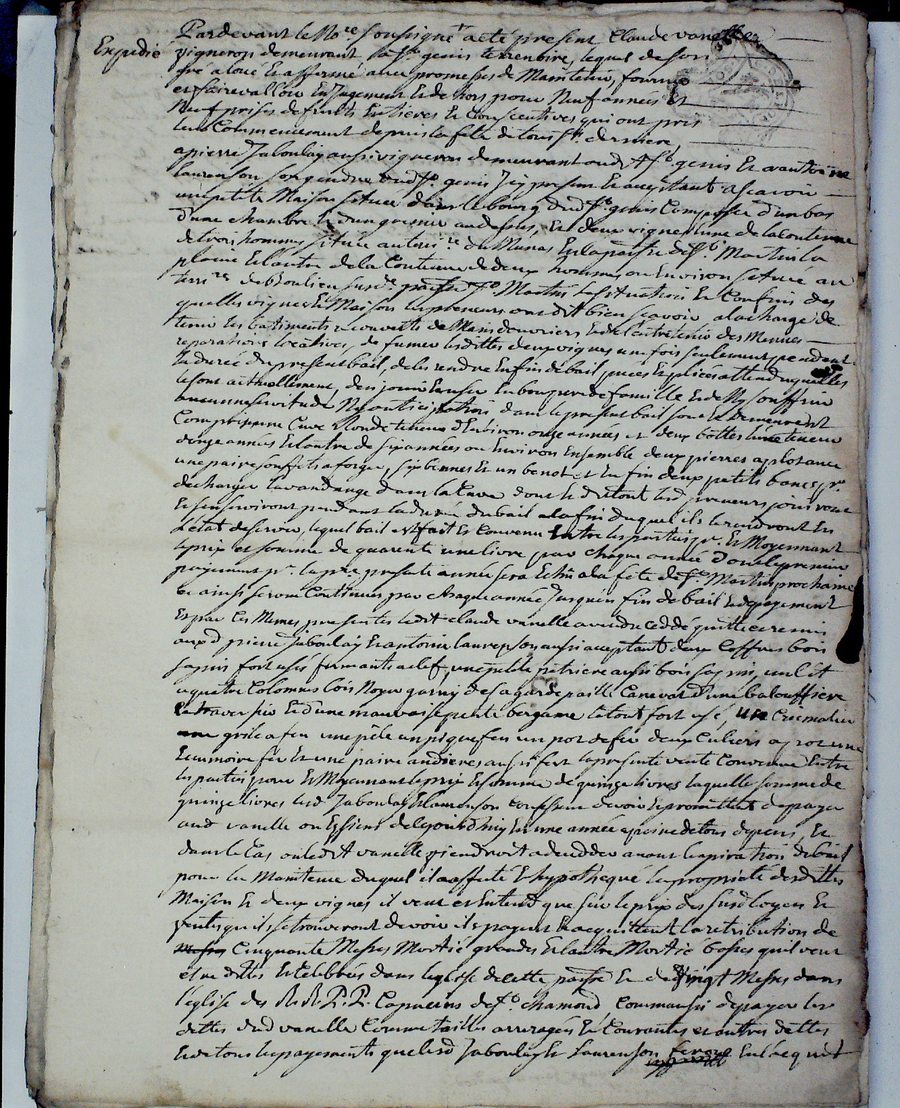 Expedié
Pardevant le No.re soussigné a été présent Claude vanelle
vigneron demeurant a St. genis terrenoire, lequel de son
gré a loué et affermé avec promesses de Maintenir, fournir
et faire valloir En Jugement et dehors pour Neuf années et
Neuf prises de fruits Entieres et Consecutives qui ont pris
leur Commencement depuis la fête de tous St. derniere
a pierre Jaboulay aussi vigneron demeurant aud. St. genis Et a antoine
laurenson son gendre dud. St. genis Icy present Et acceptant a scavoir
une petite Maison située dans le bourg dud. St. genis Composée d'un bas
d'une chambre et d'un grenier au dessus, Et deux vignes l'une de la contenue
de trois hommes située au terri.re du Munas En la paroisse de St. Martin la
plaine Et l'autre de la Contenue de deux hommes ou Environ située au
terri.re de Boulieu susd. paroisse St. Martin les situations Et Confins des
quelles vignes Et Maison les preneurs ont dit bien scavoir a la charge de
tenir les batiments recouverts de Main d'ouvriers Et de l'entretenir des Menues
reparations locatives, de fumer lesdittes deux vignes une fois seulement pendant
la durée du present bail, de les rendre En fin de bail
le sont actuellement, d'en jouir Et user En bon pere de famille Et de N'y souffrir
aucunne servitude Ny anticipations dans le present bail sont Et demeurent
Comprisme une Cuve Ronde tenant d'Environ onze années et deux bottes l'une tenant
onze années Et l'autre de six années ou Environ Ensemble deux pierres
une paire souflets a forge, six bennes Et un benot et En fin deux petits bancs pr.
decharger la vandange dans la Cuve dont le dit tout lesd. preneurs jouiront
Et se serviront pendant la durée du bail a la fin duquel ils le rendront En
l'état de servir, lequel bail est fait Et Convenu Entre les parties pr. Et Moyennant
le prix et somme de quarente une livre par chaque année dont le premier
payement pr. la p.te presente année sera Echu a la fête de St. Martin prochaine
et ainsi seront Continués par chaque année jusques en fin de bail Et de payement
Et par Ces Memes presentes ledit Claude vanelle a vendu cedé quitté et remis
auxd. pierre Jaboulay Et antoine laurenson aussi acceptant deux Coffres bois
sapin fort uses fermants a clef, une petite petriere aussi bois sapin, un lit
a quatre Colonnes bois Noyer garny de sa garde paille Canevat d'une balouffiere
le traversier Et d'une mauvaise petite bergame le tout fort usé, un Cremalier
un gril a feu une pele un pique feu un pot de fer deux Culiers a pot une
Ecumoire fer Et une paire andieres aussi fer la presente vente Convenue Entre
les parties pour Et Moyennant le prix Et somme de quinze livres laquelle somme de
quinze livres lesd. Jaboulay Et laurenson confessent devoir Et promettent de payer
aud. vanelle ou Es siens de ce jourd'huy En une année a peine de tous depens, Et
dans le Cas ou ledit vanelle viendroit a deceder avant l'expiration du bail
pour la Maintenue duquel il a affecté Et hypothequé la proprieté desdittes
Maison Et deux vignes il veut et Entend que sur le prix des susd. loyers Et
ventes qu'ils se trouveront devoir ils payent Et acquittent la retribution de
Cinquante Messes Moitié grandes Et l'autre Moitié basses qu'il veut
etre dittes Et Celebrées dans l'eglise de cette parr.e Et de vingt Messes dans
l'eglise des R.R. P.P. Capucins de St. chamond Comme aussi de payer les
dettes dud. vanelle Comme tailles arrerages Et Courantes et autres dettes
Et de tous les payements que lesd. Jaboulay Et Laurenson feront En l'acquit